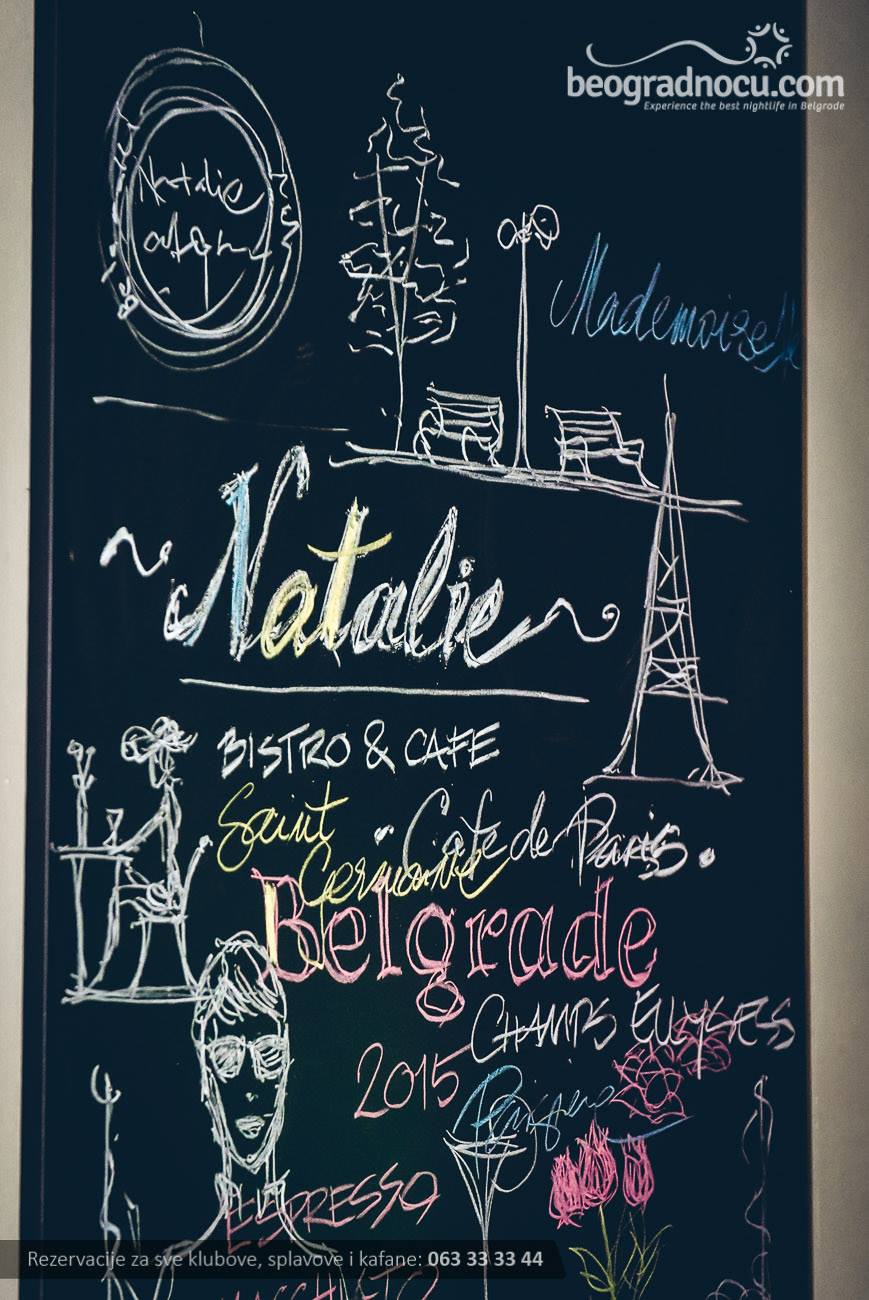 beogradnocu.com
Experience the best nightlife in Belgrade
Natalie
Mademoiselle
Natalie
BISTRO & CAFE
Saint
Cafe de Paris.
Germaine
Belgrade
CHAMPS ELYSEES
2015
ESPRESSO
Rezervacije za sve klubove, splavove i kafane: 063 33 33 44